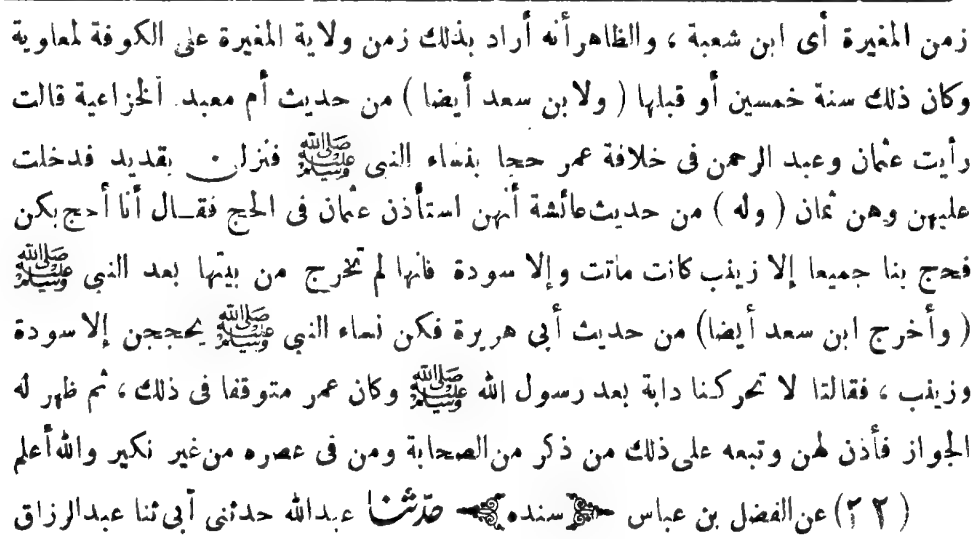 زمن المغيرة أى ابن شعبة ، والظاهر أنه أراد بذلك زمن ولاية المغيرة على الكوفة لمعاوية
وكان ذلك سنة خمسين أو قبلها ( ولابن سعد أيضا ) من حديث أم معبد الخزاعية قالت
رأيت عثمان وعبد الرحمن فى خلافة عمر حجا بنساء النبى ﷺ فنزلن بقديد فدخلت
عليهن وهن ثمان ( وله ) من حديث عائشة أنهن استأذن عثمان فى الحج فقـال أنا أحج بكن
فحج بنا جميعا إلا زينب كانت ماتت وإلا سودة فانها لم تخرج من بيتها بعد النبى ﷺ
( وأخرج ابن سعد أيضا) من حديث أبى هريرة فكن نساء النبي ﷺ يحججن إلا سودة
وزينب ، فقالتا لا تحركنا دابة بعد رسول الله ﷺ وكان عمر متوقفا فى ذلك ، ثم ظهر له
الجواز فأذن لهن وتبعه على ذلك من ذكر من الصحابة ومن فى عصره من غير نكير والله أعلم
(٢٢) عن الفضل بن عباس ﴿سنده﴾ حدّثنا عبدالله حدثنى أبى ثنا عبدالرزاق